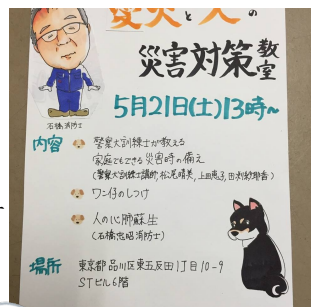 愛犬と人の
災害対策教室
5月21日(土)13時〜
石橋消防士
内容
警察犬訓練士が教える
家庭でもできる災害時の備え
(警察犬訓練士講師,松尾晴美,上田恵子,
ワン仔のしつけ
人の心肺蘇生
(石橋忠昭消防士)
場所 東京都品川区東五反田1丁目10-9
STビル6階